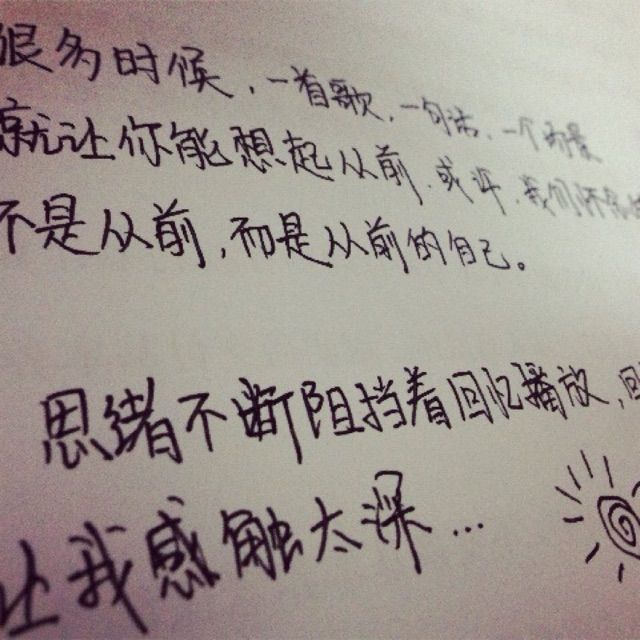 很多时候，一首歌，一句话，一个场景
就让你能想起从前，或许，我们怀念的
不是从前，而是从前的自己。
思绪不断阻挡着回忆播放，回
让我感触太深...